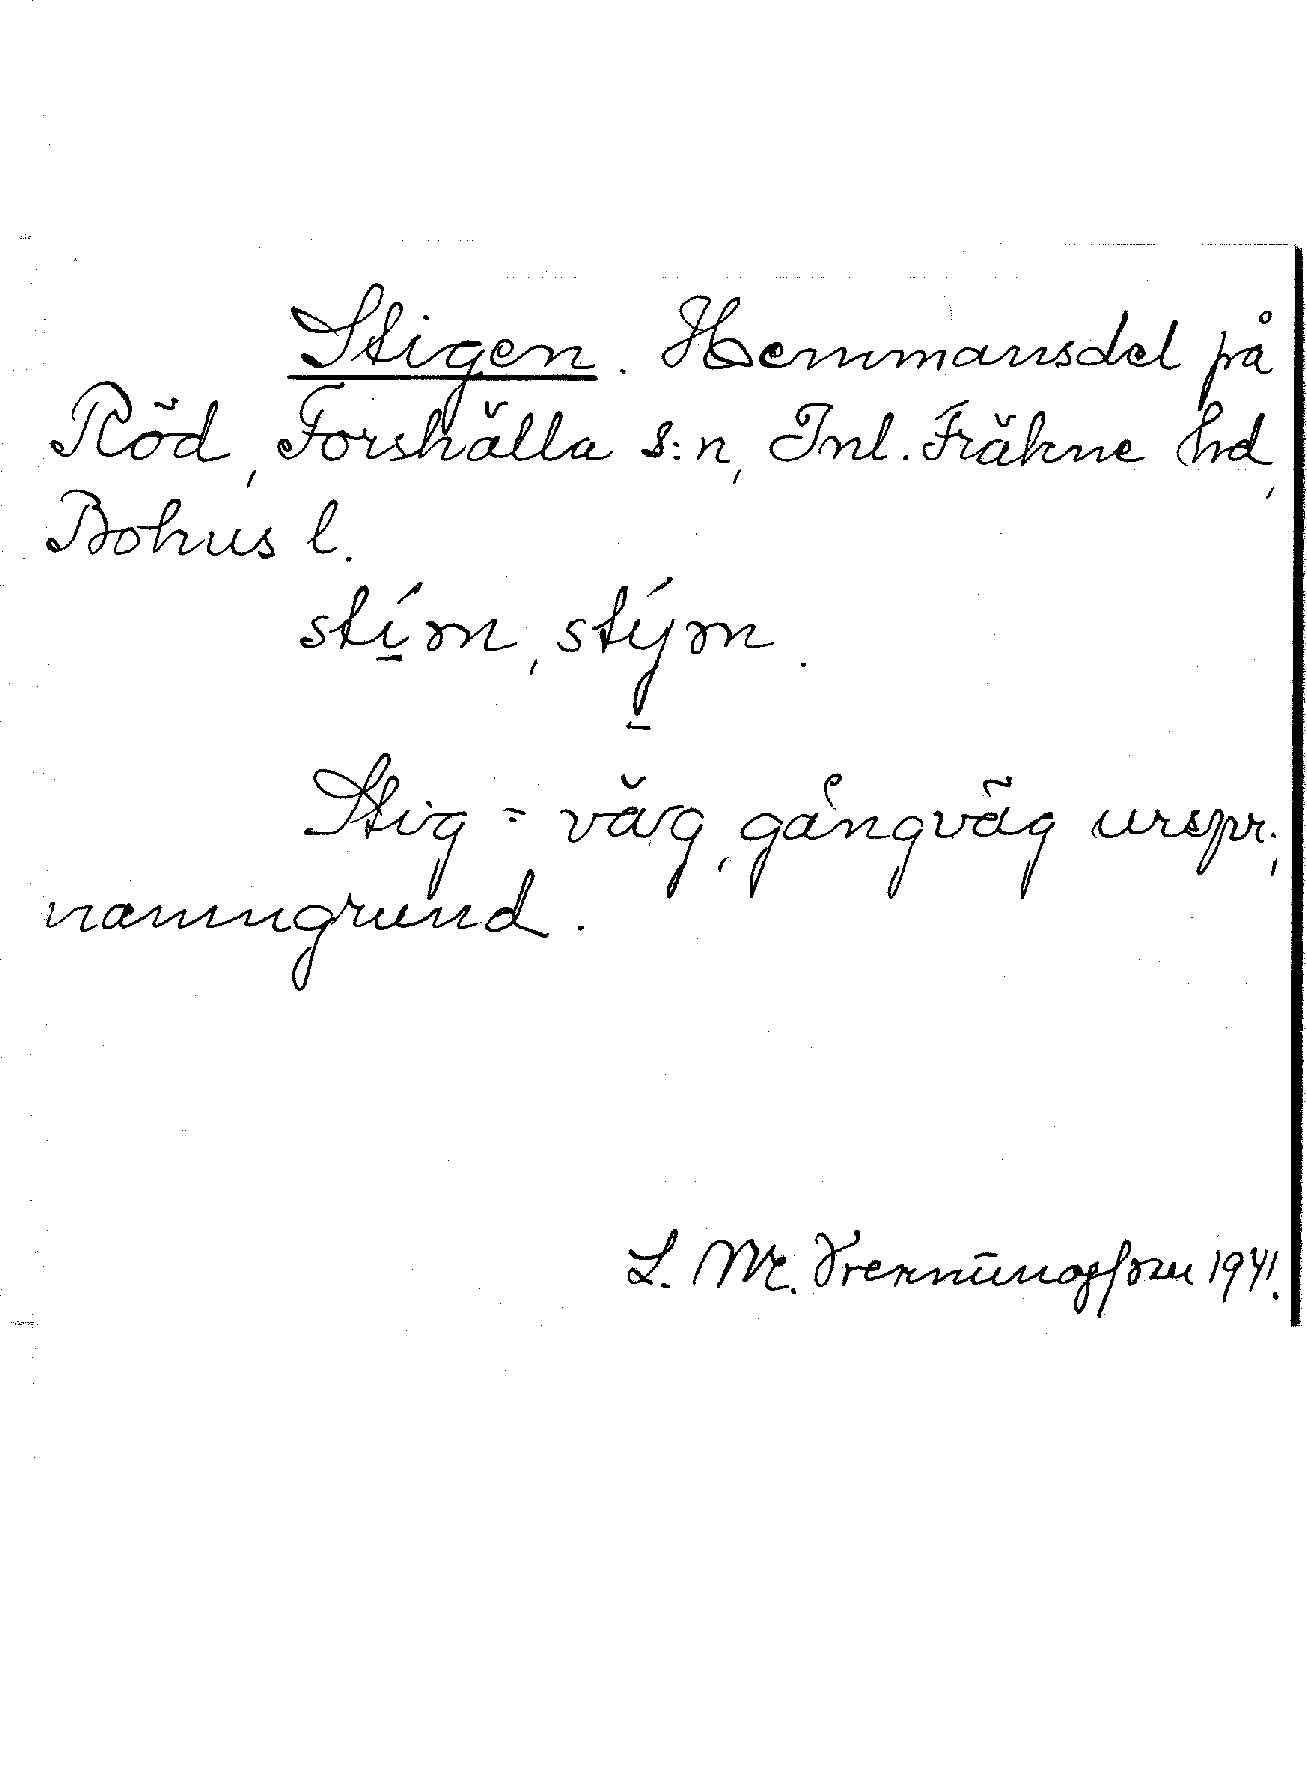 Stigen. Hemmansdel på
Röd, Forshälla s:n, Inl. Fräkne hd,
Bohus l.
stí̱ən, stý̱ən.
Stig = väg, gångväg urspr.,
namngrund.
L. M. 1941.